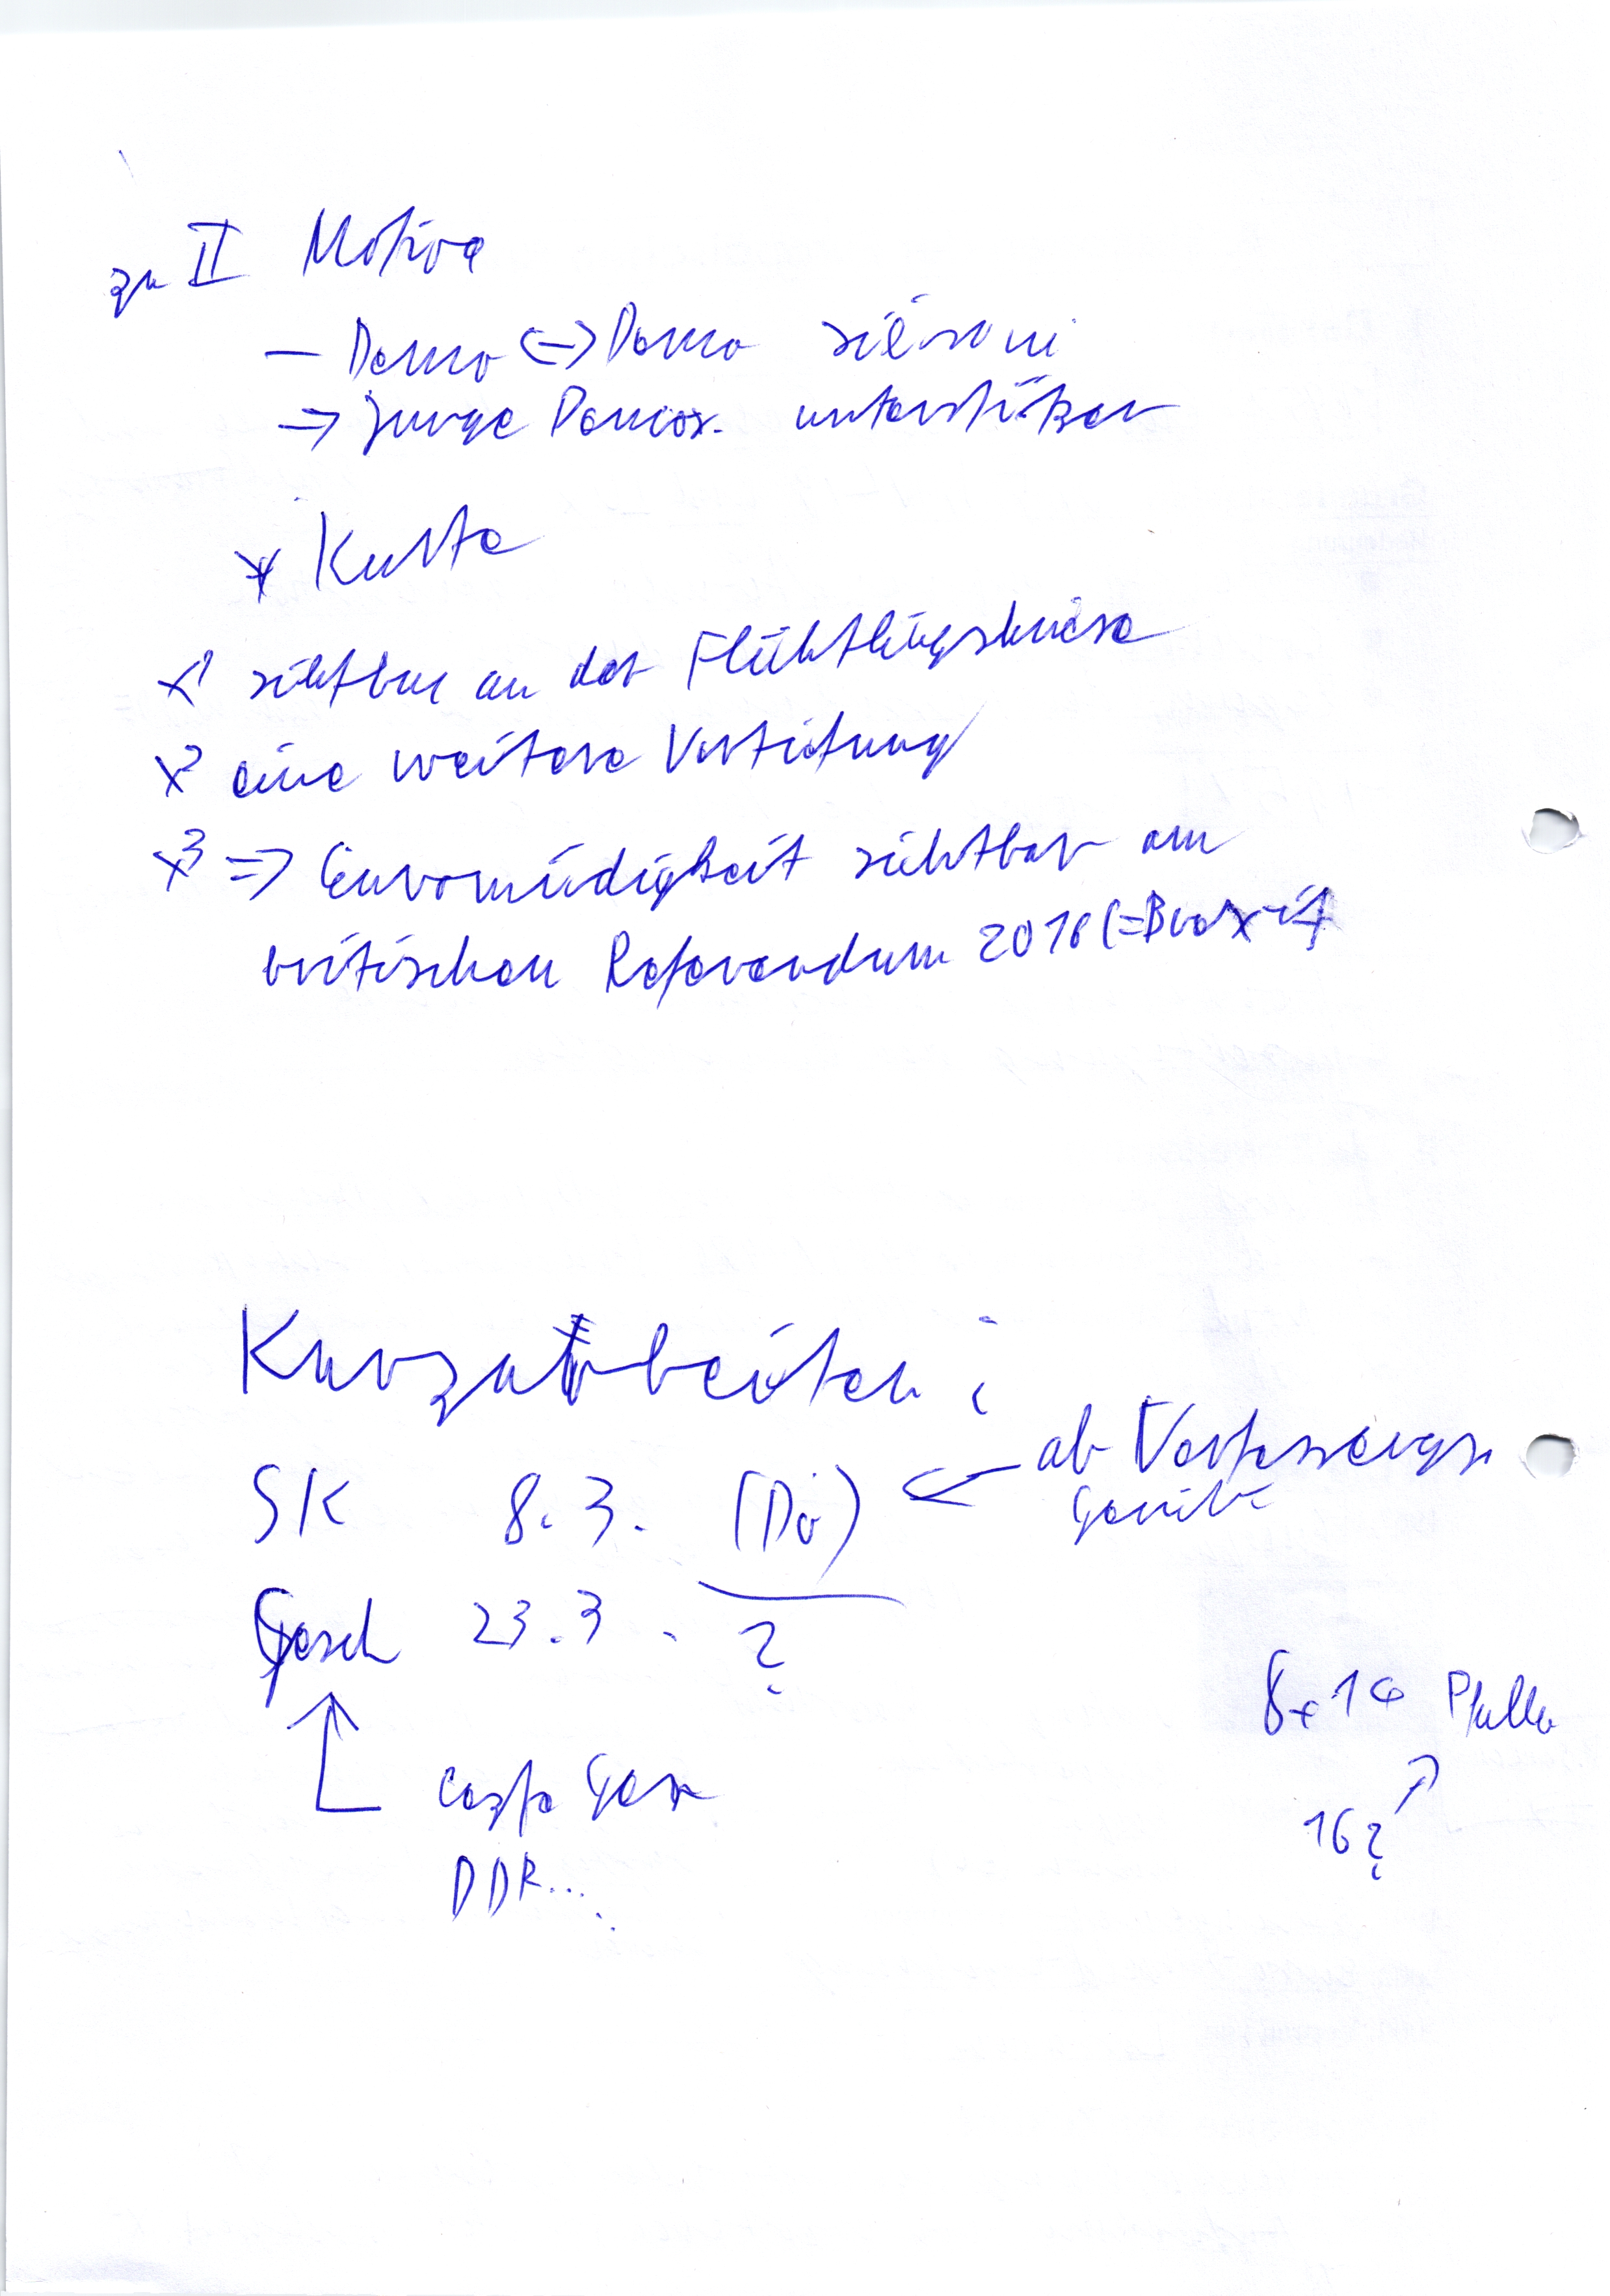 zu II Motive
– Demo <=> Demo
=> junge Demos. unterstützen
* Kuste
x1 sichtbar an der Flüchtlingskriese
x2 eine weitere Vertiefung
x3 => Euromüdigkeit sichtbar am
britischen Referendum 2016 (=Brexit
Kurzarbeiten :
SK 8.3. (Do) <– ab Verfassungs
gericht
Gesch 23.3. ?
DDR...
8+16
16?